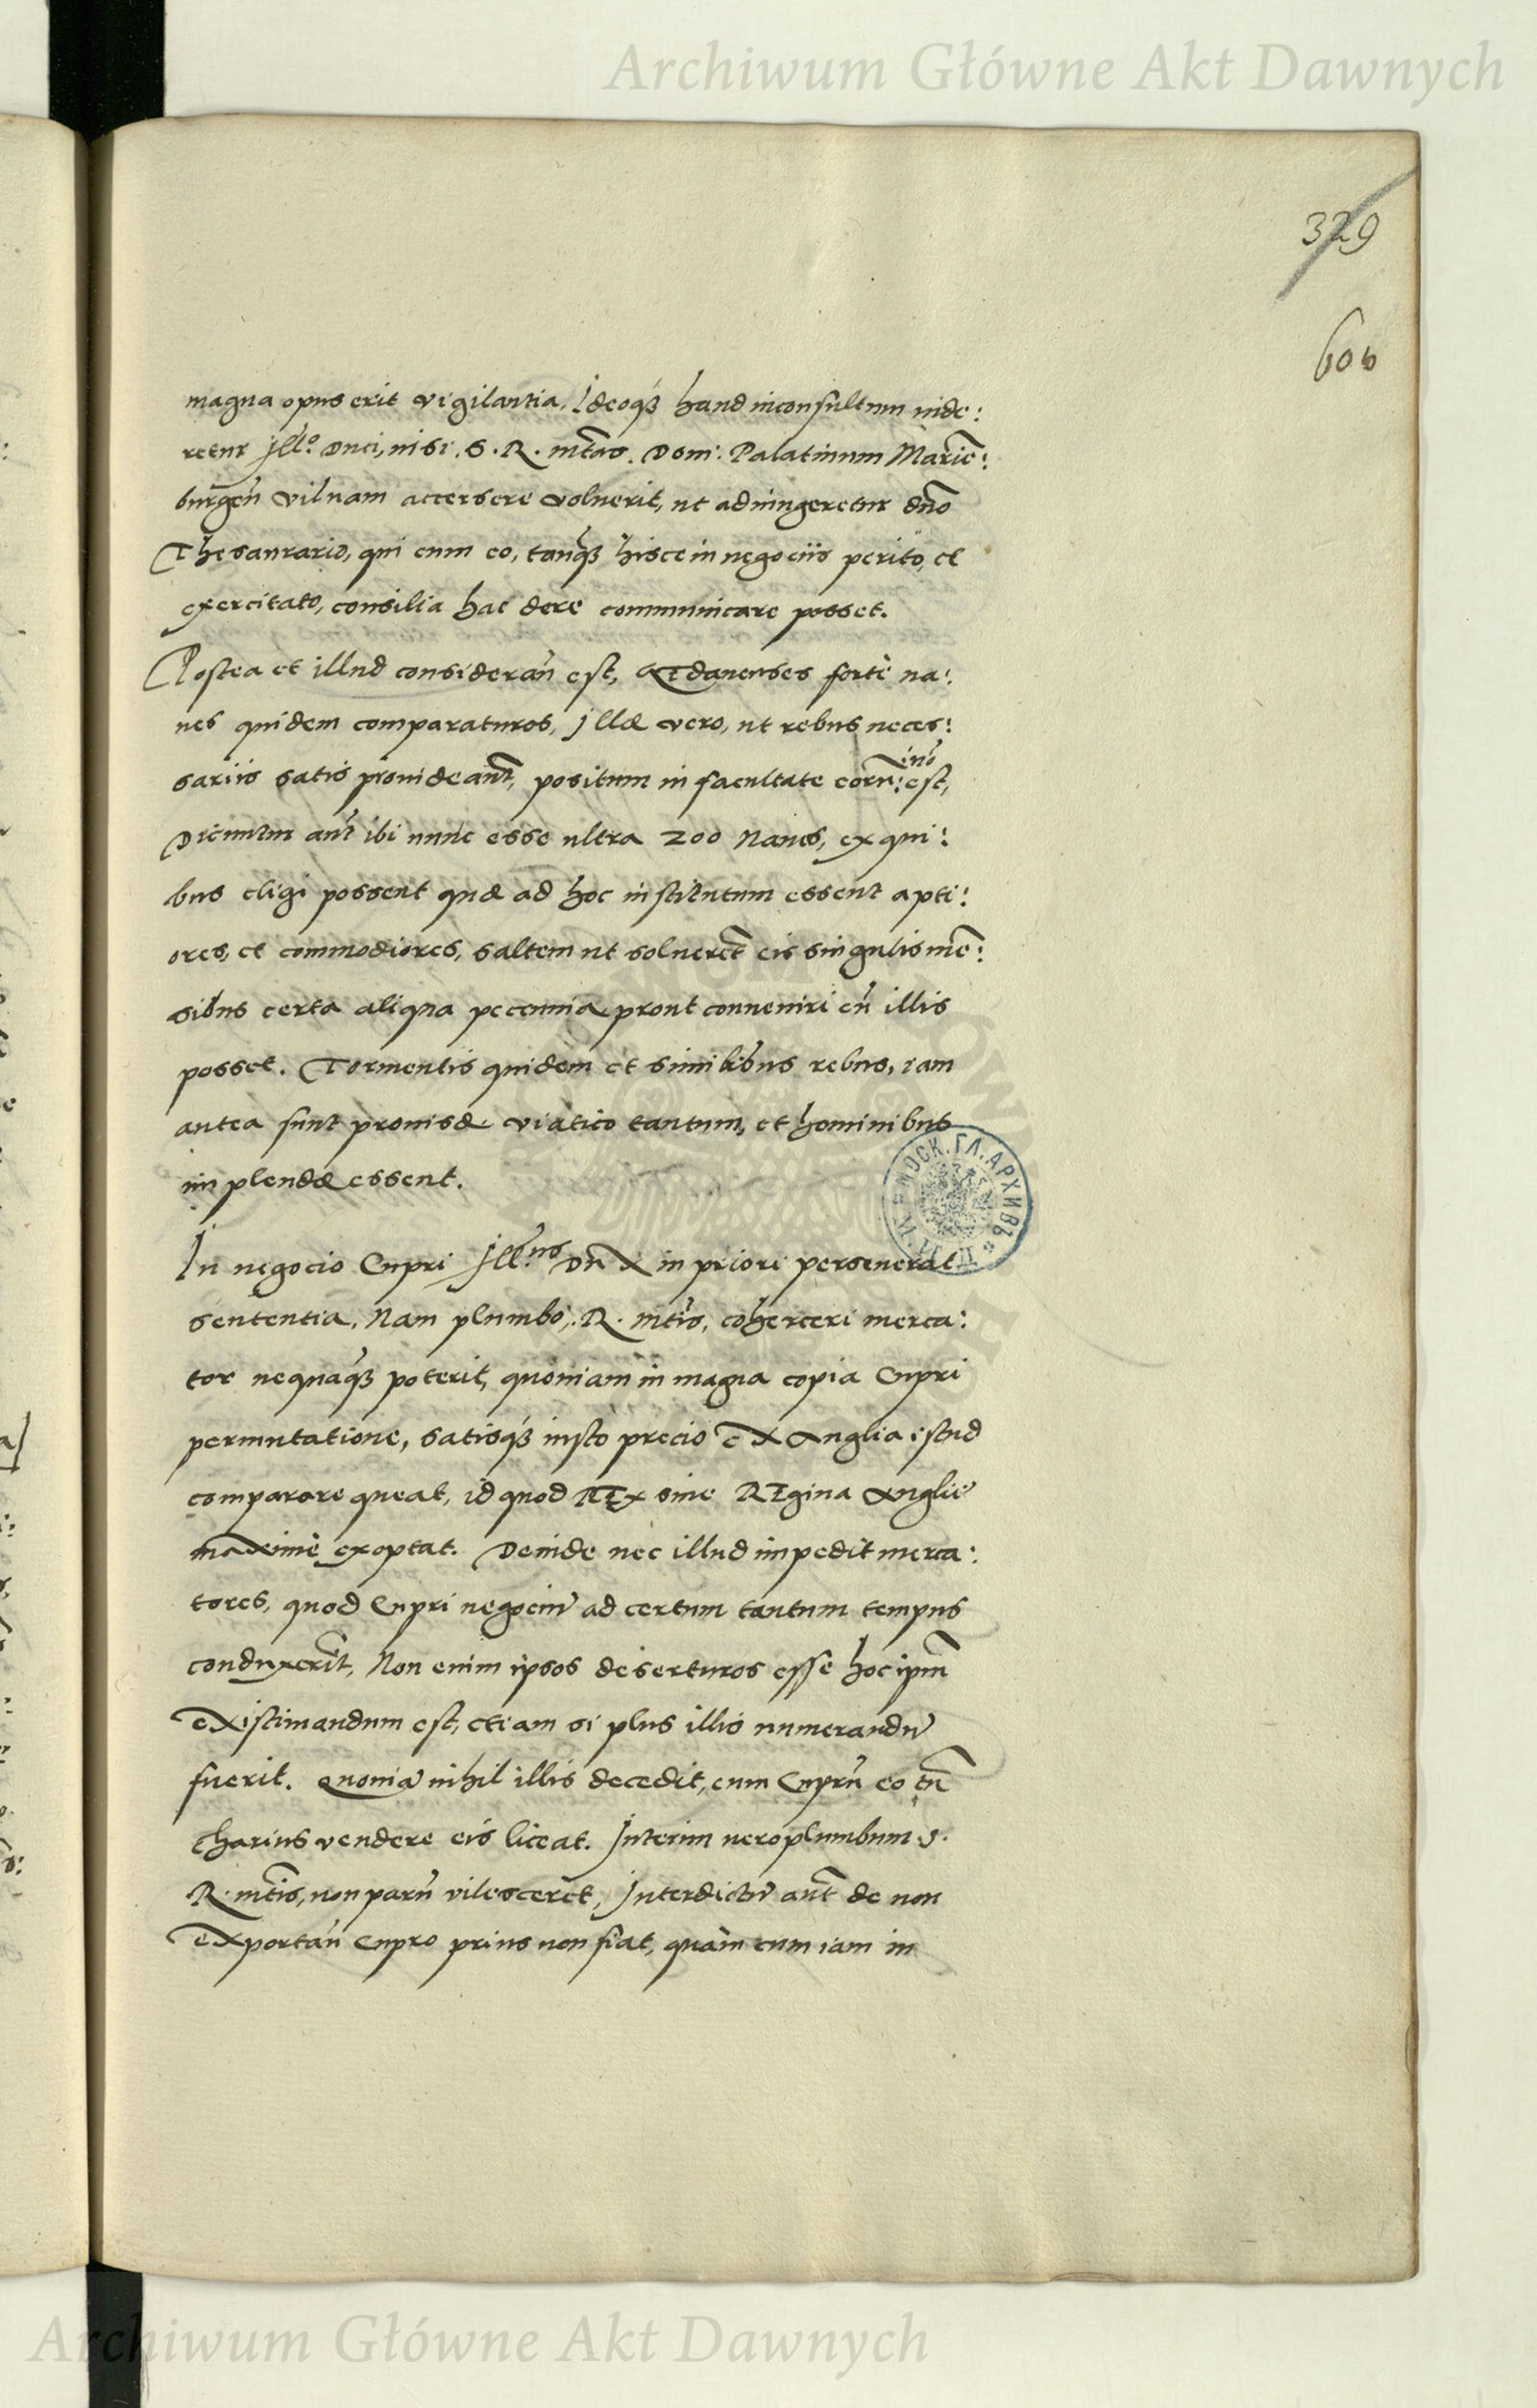 Archiwum Główne Akt Dawnych
329
606
magna opus erit vigilantia. Ideoq́ꝫ haud inconsultum uide:
retur Ill.º Duci, nisi. S. R. mtas. Dom: Palatinum Marie:
burgeñ vilnam accersere voluerit, ut adiungeretur dño
Thesaurario, qui cum eo, tanq̃ꝫ hisce in negociis perito, et
exercitato, consilia hac de re communicare posset.
Postea et illud considerañ est, Gedanenses fortè na:
ues quidem comparaturos, Illæ vero, ut rebus neces:
sariis satis prouideant, positum in facultate eorũ: est,
Dicuntur aut̃ ibi nunc esse ultra 200 Naues, ex qui:
bus eligi possent quæ ad hoc institutum essent apti:
ores, et commodiores, saltem ut soluerēt eis singulis mē:
sibus certa aliqua pecunia, prout conueniri cũ illis
posset. Tormentis quidem et similibus rebus, iam
antea sunt prouisæ viatico tantum, et hominibus
implendæ essent.
In negocio Cupri Ill.mus Dñ X in priori perseuerat
sententia, Nam plumbo, R. mtis, coherceri merca:
tor nequaq̃ꝫ poterit, quoniam in magna copia Cupri
permutatione, satisq́ꝫ iusto precio eX Anglia istud
comparare queat, id quod REx siue REgina Anglie
maximè exoptat. Deinde nec illud impedit merca:
tores, quod Cupri negociũ ad certum tantum tempus
conduxerīt, Non enim ipsos deserturos esse hoc ipm̃
eXistimandum est, etiam si plus illis numerandũ
fuerit. Quoniã nihil illis decedit, cum Cuprũ eo tm̃
charius vendere eis liceat. Interim uero plumbum S.
R. mtis, non parũ vilesceret, Interdictũ aut̃ de non
eXportañ Cupro prius non fiat, quàm cum iam in
МОСК. ГЛ. АРХИВЪ
Archiwum Główne Akt Dawnych